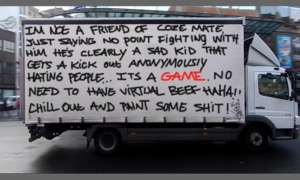 IM NOT A FRIEND OF COZE MATE,
JUST SAYING NO POINT FIGHTING WITH
HIM HE'S CLEARLY A SAD KID THAT
GETS A KICK OUT ANONYMOUSLY
HATING PEOPLE.. ITS A GAME.. NO
NEED TO HAVE VIRTUAL BEEF HAHA!!
CHILL OUT AND PAINT SOME SHIT!